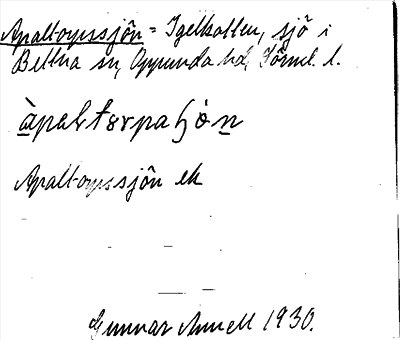 Apaltorpssjön = Igelkotten, sjö i
Bettna sn, Oppunda hd, Söml. l.
àpaltorpaʃön
Apaltorpssjön ek
Gunnar Annell 1930.